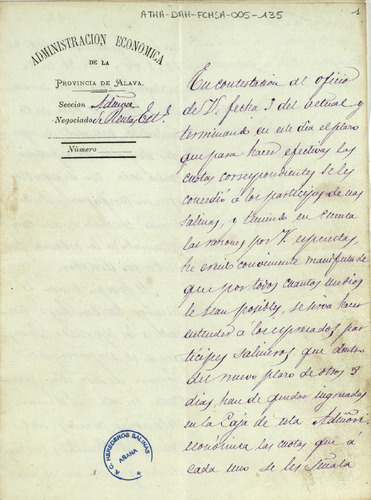 ATHA-DAH-FCHSA-005-135
1
ADMINISTRACION ECONÓMICA
DE LA
PROVINCIA DE ALAVA.
Seccion Admon
Negociado de Rentas Est.
Número
En contestación al oficio
de V. fecha 3 del actual y
terminando en este dia el plazo
que para hacer efectivas las
cuotas correspondientes se les
concedió á los participes de esas
salinas, y teniendo en cuenta
las razones por V. expuestas,
he creido conveniente manifestarle
que por todos cuantos medios
le sean posibles, se sirva hacer
entender á los expresados par
tícipes salineros que dentro
del nuevo plazo de otros 8
dias, han de quedar ingresadas
en la Caja de esta Admón
económica las cuotas que á
cada uno se les señala
A.C. HEREDEROS SALINAS
AÑANA